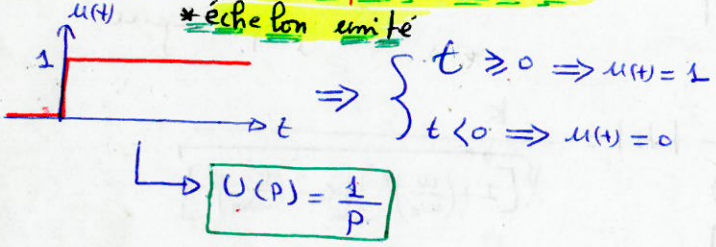 u(t)
* échelon unité
1
t ≥ 0 ⇒ u(t) = 1
⇒
t
t < 0 ⇒ u(t) = 0
U(P) = 1/P